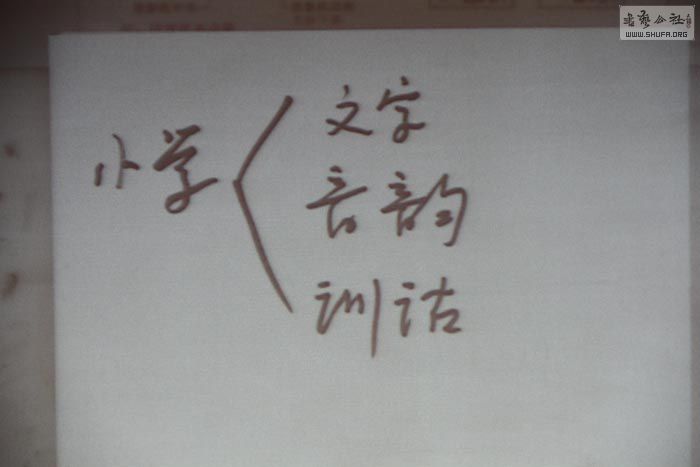 小学
文字
音韵
训诂
书艺公社
WWW.SHUFA.ORG